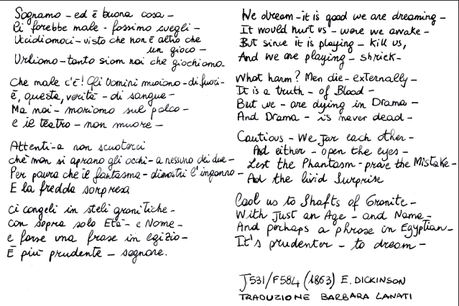 Sogniamo - ed è buona cosa -
Ci farebbe male - fossimo svegli -
Uccidiamoci - visto che non è altro che
un gioco -
Urliamo - tanto siam noi che giochiamo

Che male c'è! Gli Uomini muoiono - di fuori -
È, questa, verità - di sangue -
Ma noi - moriamo sul palco -
E il teatro - non muore -

Attenti - a non scuoterci
che non si aprano gli occhi - a nessuno dei due -
Per paura che il fantasma - dimostri l'inganno -
E la fredda sorpresa

ci congeli in steli granitiche -
con sopra solo Età - e Nome -
e forse una frase in egizio -
È più prudente - sognare.

We dream - it is good we are dreaming -
It would hurt us - were we awake -
But since it is playing - kill us,
And we are playing - shriek -

What harm? Men die - externally -
It is a truth - of Blood -
But we - are dying in Drama -
And Drama - is never dead -

Cautious - We jar each other -
And either - open the eyes -
Lest the Phantasm - prove the Mistake -
And the livid Surprise

Cool us to Shafts of Granite -
With just an Age - and Name -
And perhaps a phrase in Egyptian -
It's prudenter - to dream -

J531/F584 (1863) E. DICKINSON
TRADUZIONE BARBARA LANATI